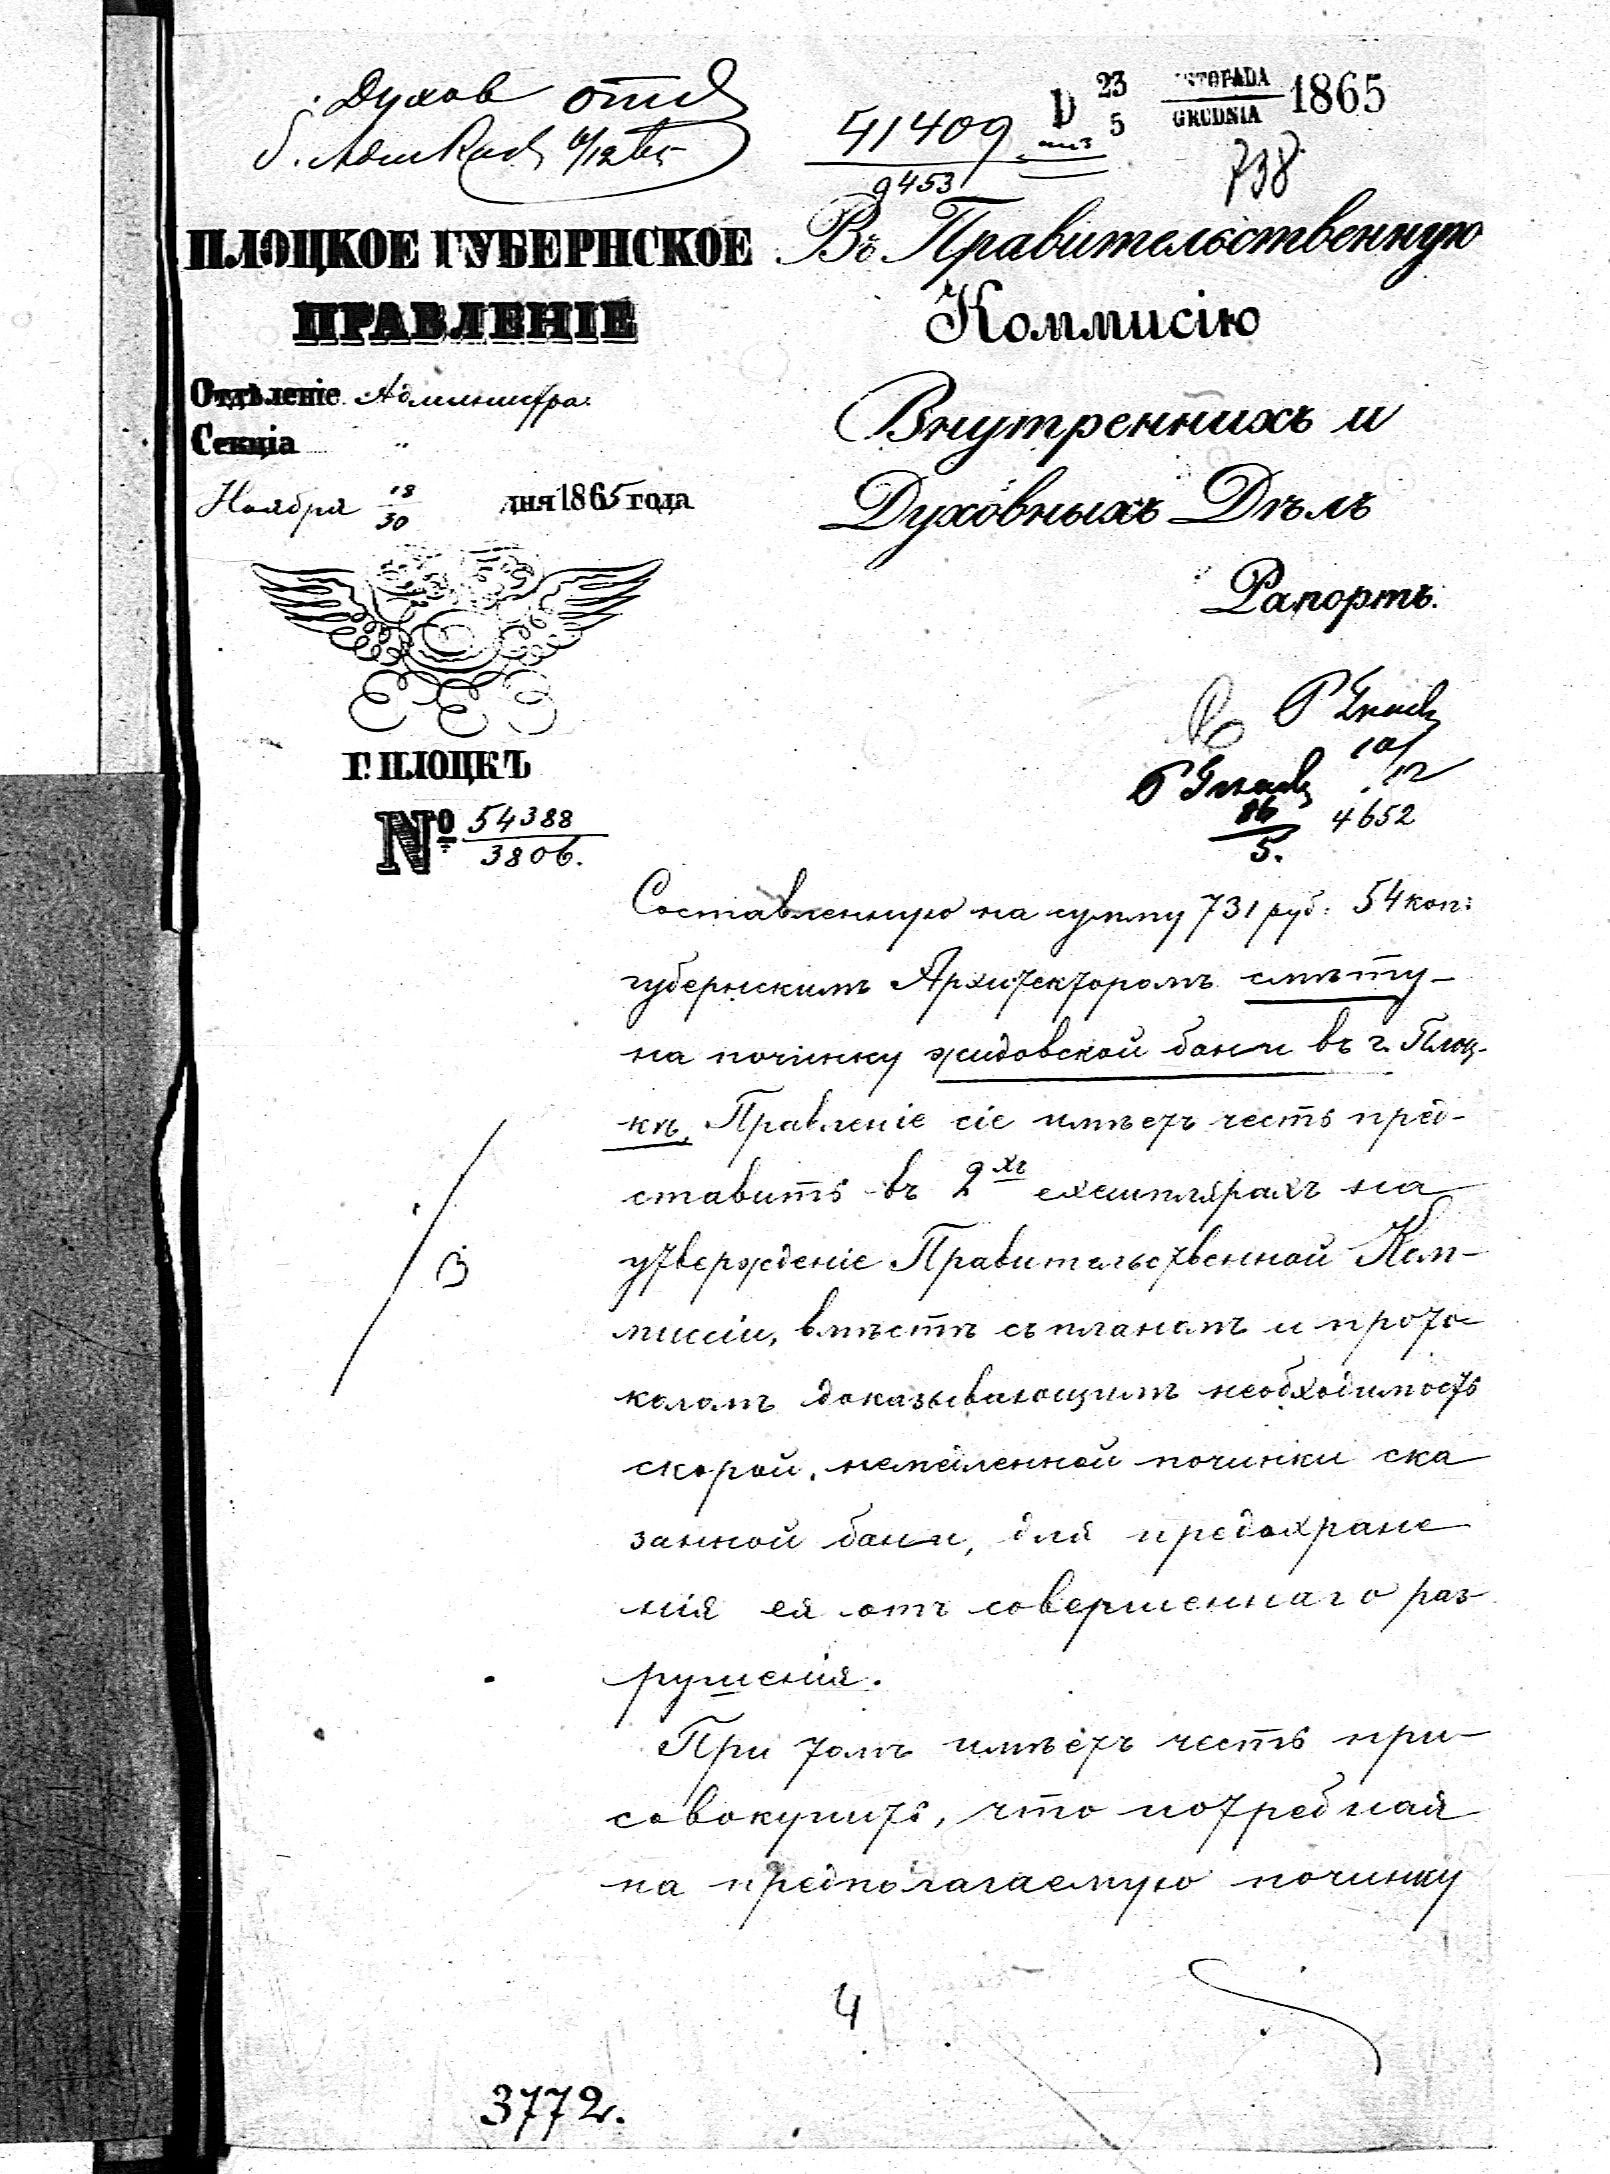 Духов отд
41409
9453
D 23 LISTOPADA
5 GRUDNIA 1865
738
ПЛОЦКОЕ ГУБЕРНСКОЕ
ПРАВЛЕНІЕ
Отдѣленіе Администра:
Секція "
Ноября 18/30 дня 1865 года
Г. ПЛОЦКЪ
№ 54388
3806.
Въ Правительственную
Коммисію
Внутреннихъ и
Духовныхъ Дѣлъ
Рапортъ.
10/12
86 4652
5.
Составленную на сумму 731 руб: 54 коп:
губернскимъ Архитекторомъ смѣту
на починку жидовской бани въ г. Плоц-
кѣ, Правленіе сіе имѣетъ честь пред-
ставить въ 2хъ ехемплярахъ на
утвержденіе Правительственной Ком-
миссіи, вмѣстѣ съ планомъ и прото
коломъ доказывающимъ необходимость
скорой, немѣдленной починки ска
занной бани, для предохране
нія ея отъ совершеннаго раз-
рушенія.
При томъ имѣетъ честь при-
совокупить, что потребная
на предполагаемую починку
4
3772.